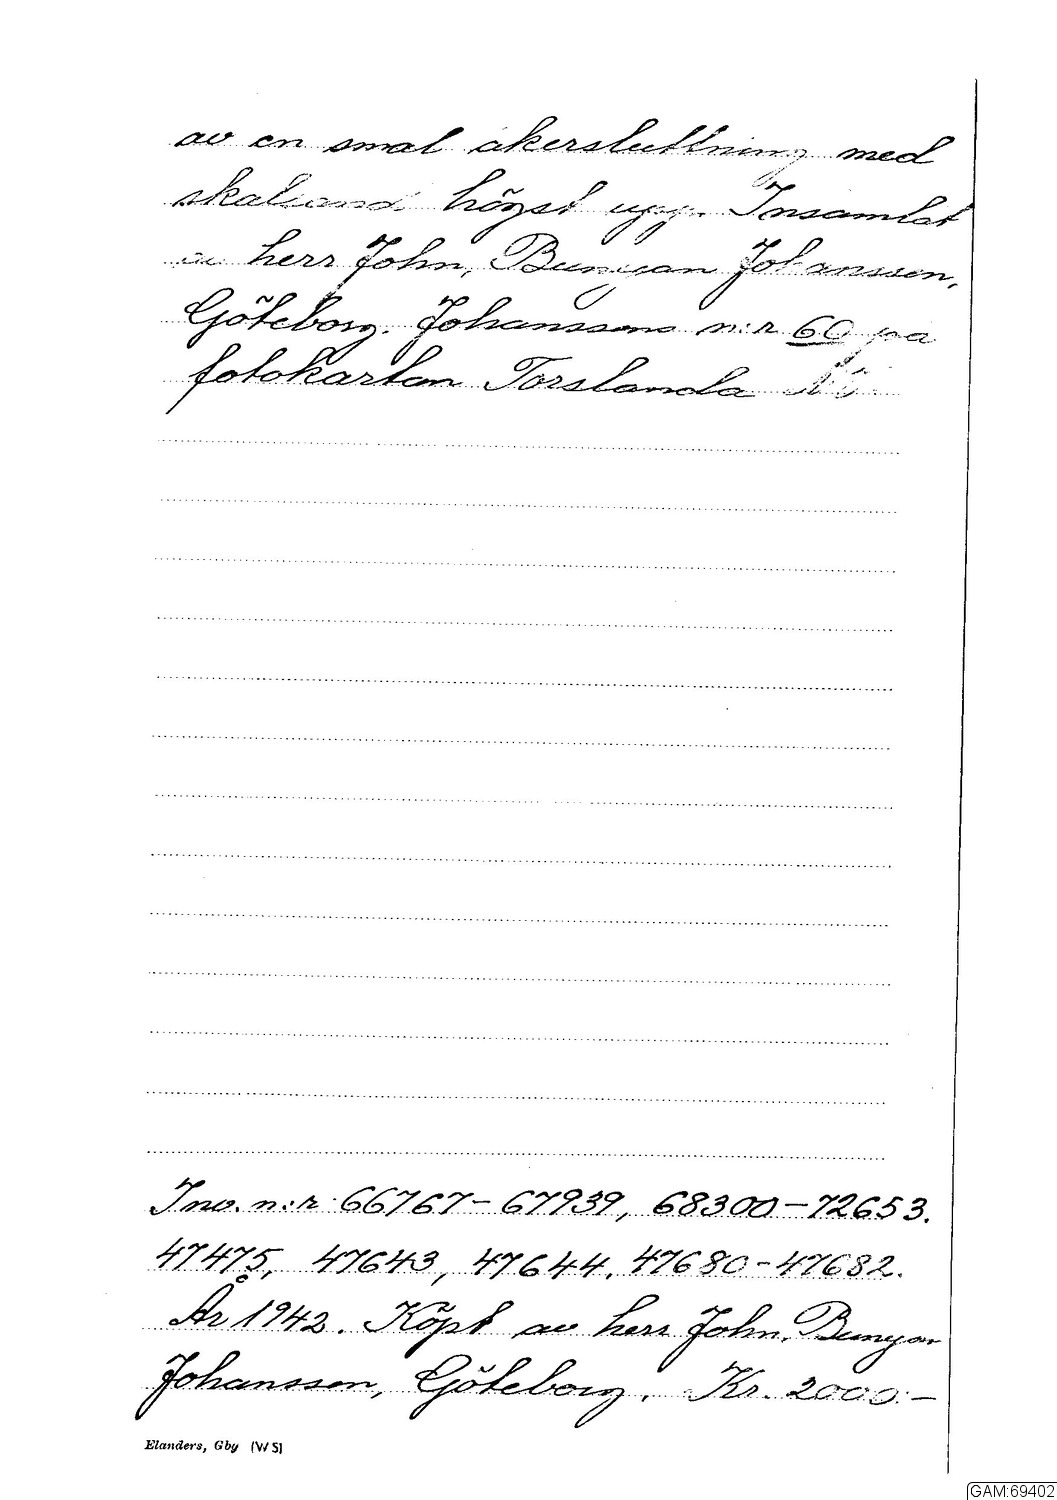 av en smal åkersluttning med
skalsand högst upp. Insamlat
av herr John, Bunyan Johansson,
Göteborg. Johanssons n:r 60 på
fotokartan Torslanda
Inv. n:r 66767-67939, 68300-72653.
47475, 47643, 47644, 47680-47682.
År 1942. Köpt av herr John, Bunyan
Johansson, Göteborg. Kr. 2000:-
Elanders, Gby (W S)
GAM:69402